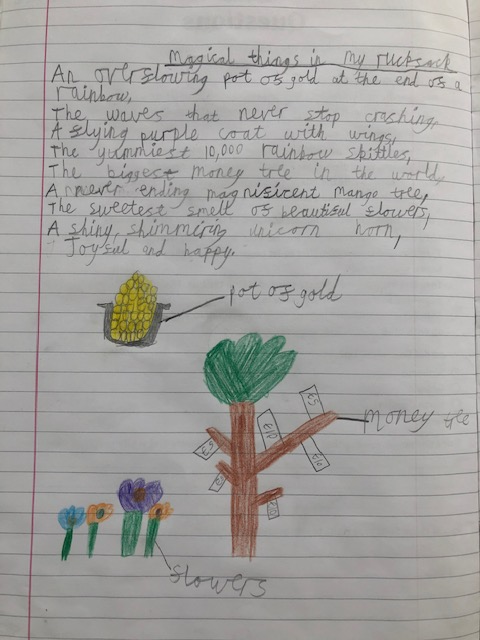 Magical things in my rucksack
An overflowing pot of gold at the end of a
rainbow,
The waves that never stop crashing,
A flying purple coat with wings,
The yummiest 10,000 rainbow skittles,
The biggest money tree in the world,
A never ending magnificent mango tree,
The sweetest smell of beautiful flowers,
A shiny, shimmering unicorn horn,
Joyful and happy.
pot of gold
£5
£10
money tree
flowers